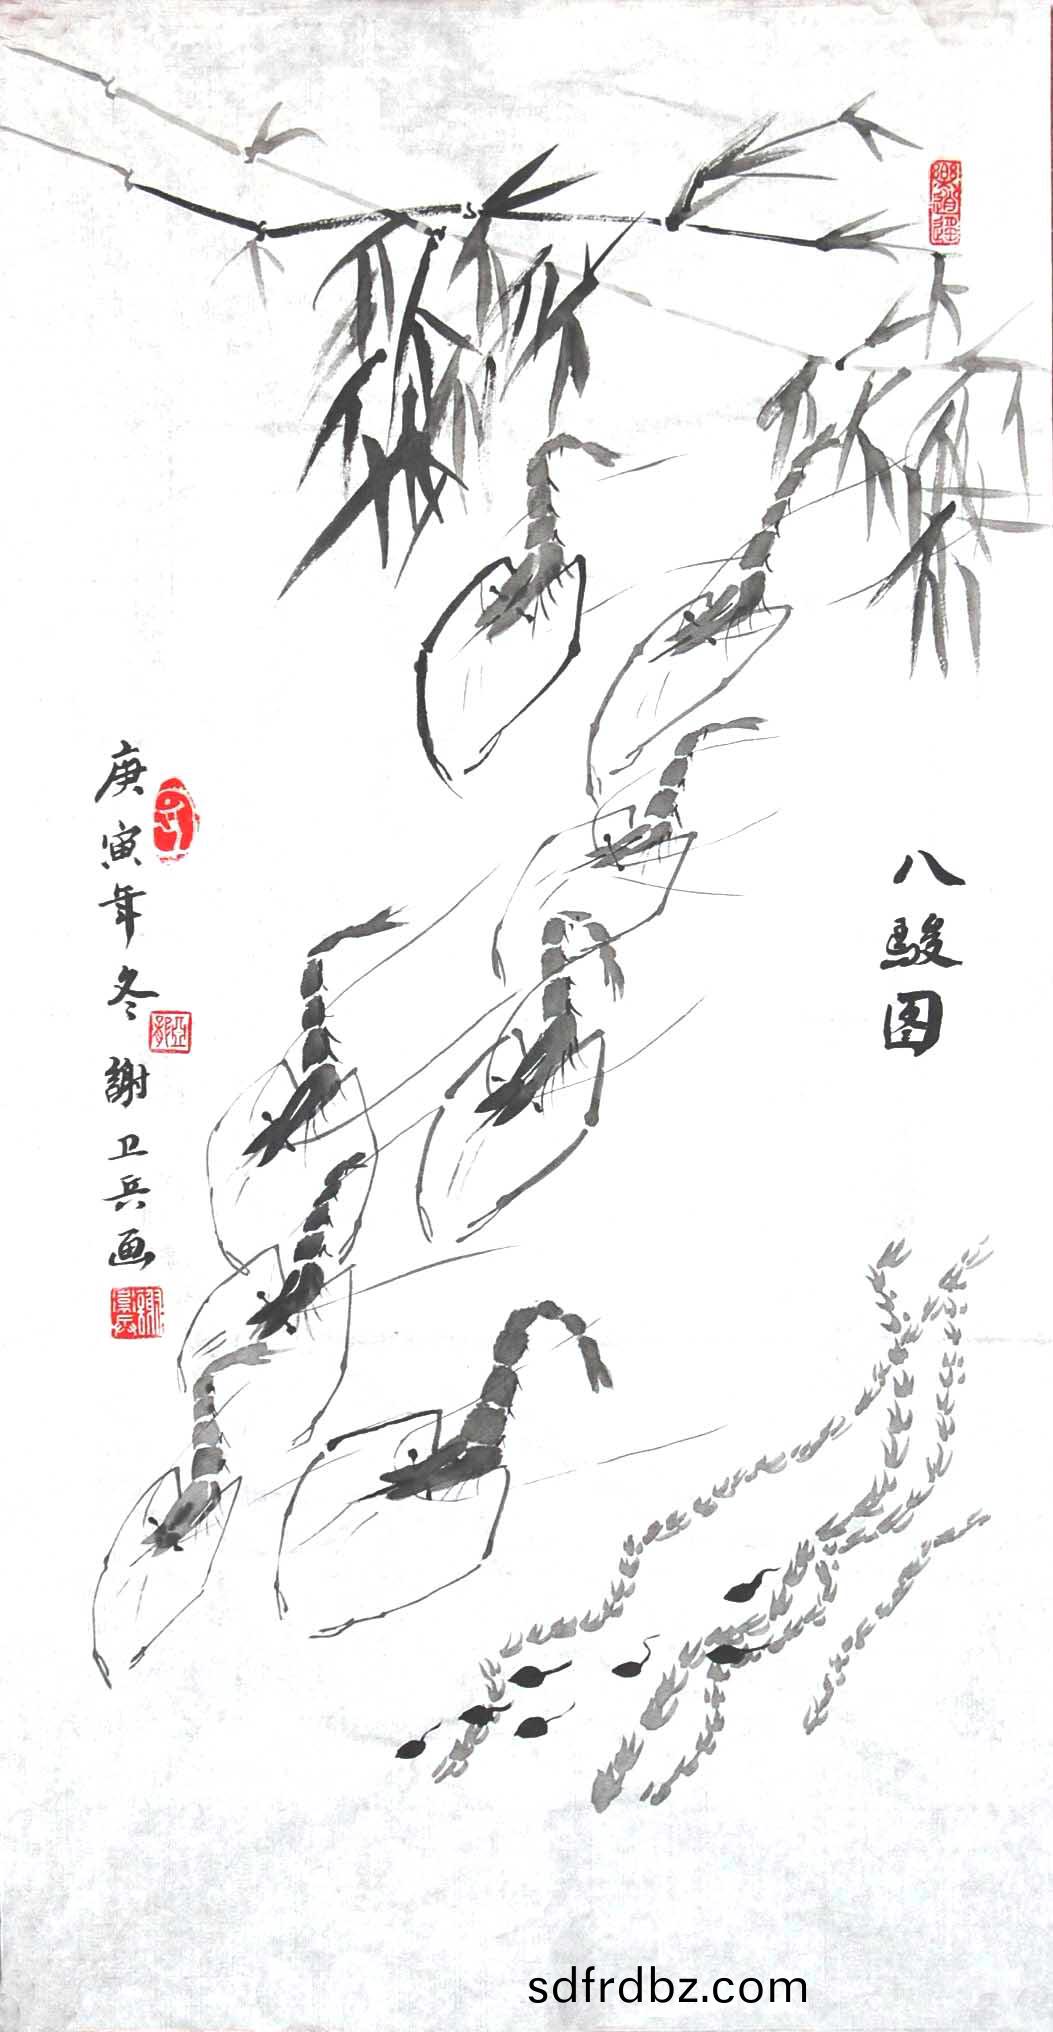 八駿图
庚寅年冬 謝卫兵画
sdfrdbz.com